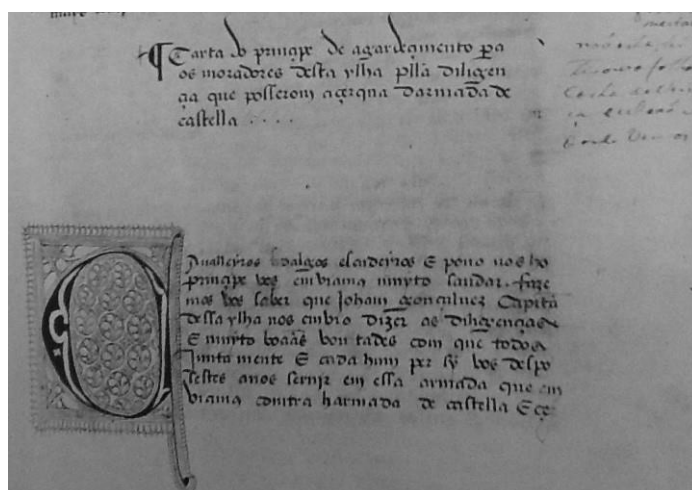 ¶ Carta do prinçipe de agardeçimento pera
os moradores desta ylha plla diligen
ça que posserom açerqua darmada de
castella . . . .
Cavalleiros fidalgos escudeiros E povo nos ho
prinçipe vos enviamos muyto saudar. faze
mos vos saber que Joham gonçalvez Capitã
dessa ylha nos enviou dizer as diligençias
E muyto boaas vontades com que todos
Juntamente E cada hum per sy vos despo
sestes a nos servir em essa armada que en
viamos contra harmada de castella E